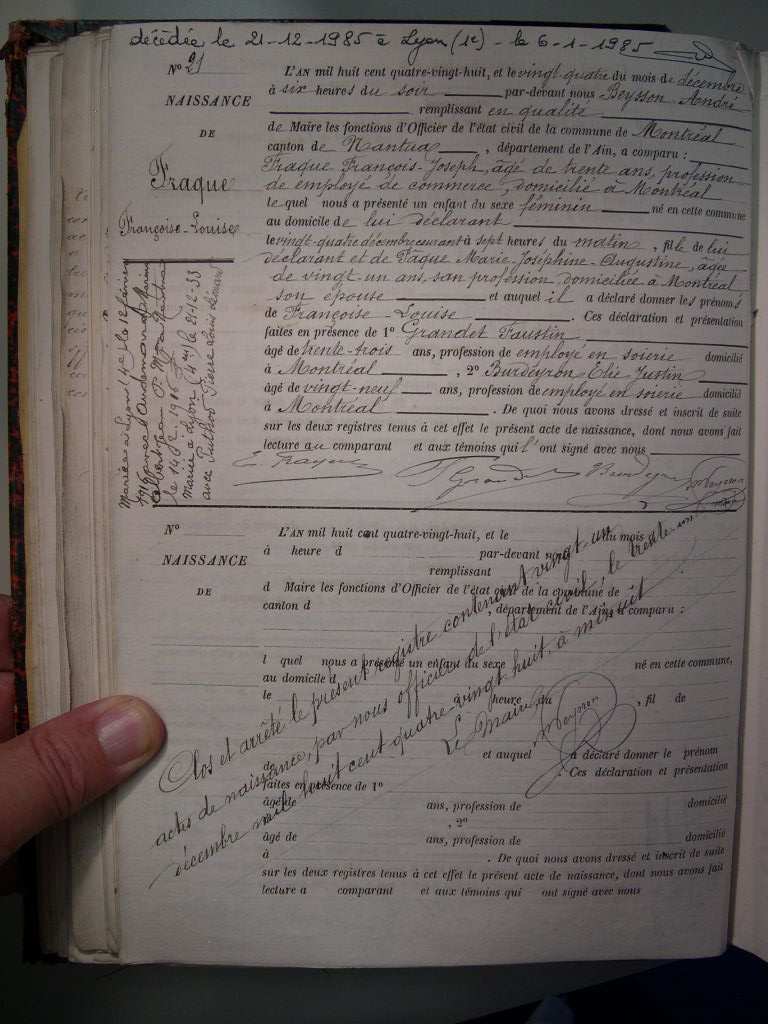 décédée le 21-12-1985 à Lyon (1e) - le 6-1-1985
N° 21
NAISSANCE
DE
Fraque
Françoise-Louise
L'AN mil huit cent quatre-vingt-huit, et le vingt-quatre du mois de décembre
à six heures du soir par-devant nous Beysson André
remplissant en qualité
de Maire les fonctions d'Officier de l'état civil de la commune de Montréal
canton de Nantua, département de l'Ain, a comparu :
Fraque François-Joseph, âgé de trente ans, profession
de employé de commerce, domicilié à Montréal
le quel nous a présenté un enfant du sexe féminin né en cette commune
au domicile de lui déclarant
le vingt-quatre décembre courant à sept heures du matin, fille de lui
déclarant et de Pâque Marie-Joséphine-Augustine, âgée
de vingt-un ans, san profession, domiciliée à Montréal
son épouse et auquel il a déclaré donner les prénoms
de Françoise-Louise. Ces déclaration et présentation
faites en présence de 1° Grandet Faustin
âgé de trente-trois ans, profession de employé en soierie domicilié
à Montréal, 2° Burdeyron Elie Justin
âgé de vingt-neuf ans, profession de employé en soierie domicilié
à Montréal. De quoi nous avons dressé et inscrit de suite
sur les deux registres tenus à cet effet le présent acte de naissance, dont nous avons fait
lecture au comparant et aux témoins qui l'ont signé avec nous
Mariée à Lyon 4e le 12 février
le 14 1916
Mariée à Lyon (4me) le 21-12-33
avec Puthod Pierre Louis
N°
NAISSANCE
DE
L'AN mil huit cent quatre-vingt-huit, et le du mois de
à heure d par-devant nous
remplissant
d Maire les fonctions d'Officier de l'état civil de la commune de
canton d, département de l'Ain a comparu :
l quel nous a présenté un enfant du sexe né en cette commune,
au domicile d
le à heure du, fil de
et auquel a déclaré donner le prénom
de. Ces déclaration et présentation
faites en présence de 1°
âgé de ans, profession de domicilié
à, 2°
âgé de ans, profession de domicilié
à. De quoi nous avons dressé et inscrit de suite
sur les deux registres tenus à cet effet le présent acte de naissance, dont nous avons fait
lecture a comparant et aux témoins qui ont signé avec nous
Clos et arrêté le présent registre contenant vingt un
actes de naissance, par nous officier de l'état civil le trente un
décembre mil huit cent quatre-vingt-huit, à minuit
Le Maire